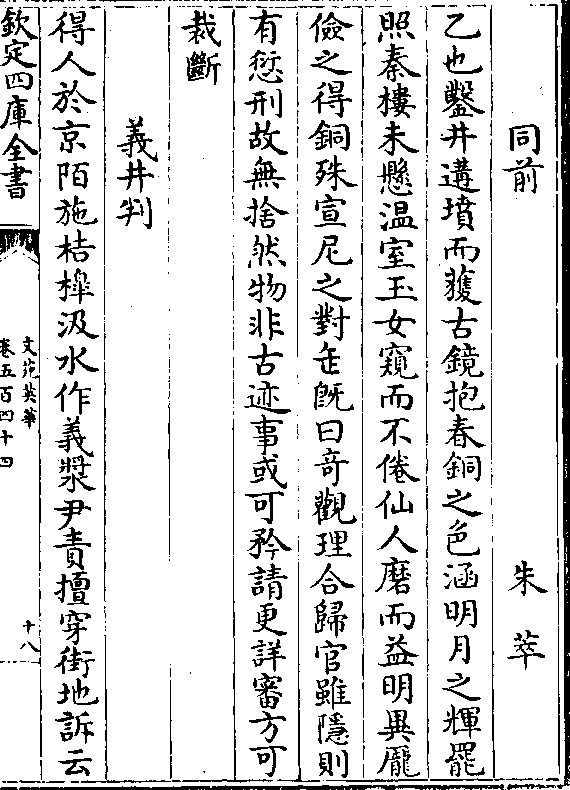 同前　朱萃
乙也鑿井遘墳而獲古鏡抱春銅之色涵明月之輝罷
照秦樓未懸温室玉女窺而不倦仙人磨而益明異龐
儉之得銅殊宣尼之對缶既曰奇觀理合歸官雖隱則
有愆刑故無捨然物非古迹事或可矜請更詳審方可
裁斷
義井判
得人於京陌施桔槔汲水作義漿尹責擅穿街地訴云
欽定四庫全書
文苑英華
卷五百四十四
十八